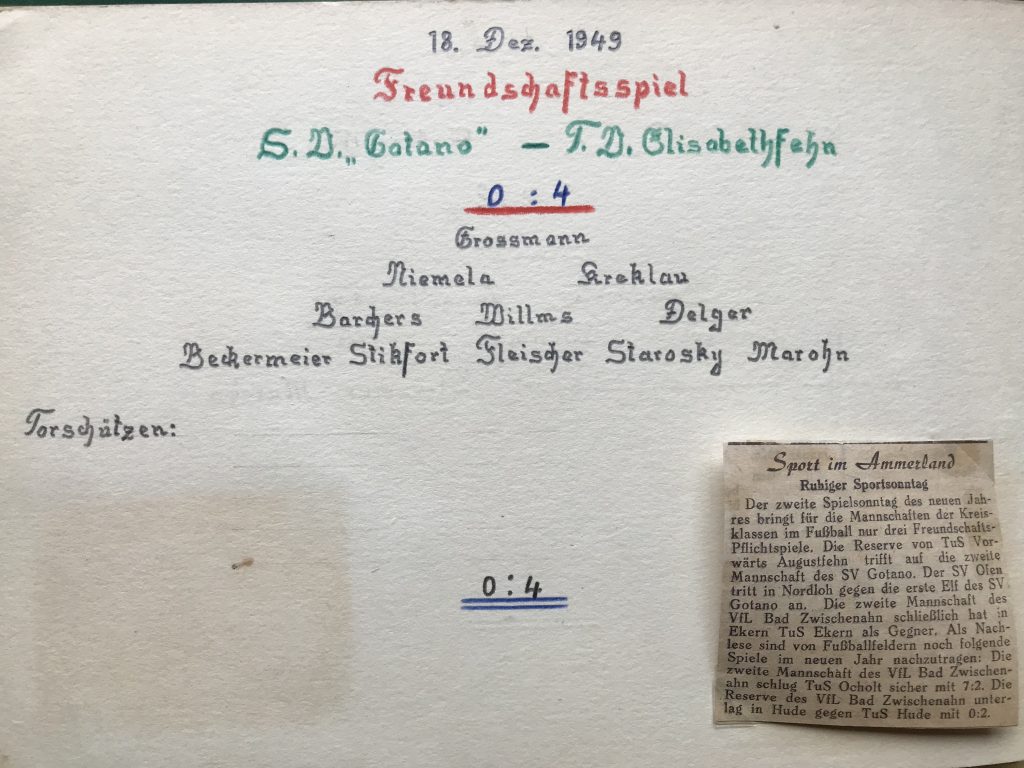 18. Dez. 1949
Freundschaftsspiel
S.V. „Gotano" — T.V. Elisabethfehn
0 : 4
Grossmann
Niemela Kreklau
Barchers Willms Delger
Beckermeier Stikfort Fleischer Starosky Marohn
Torschützen:
0:4
Sport im Ammerland
Ruhiger Sportsonntag
Der zweite Spielsonntag des neuen Jah-
res bringt für die Mannschaften der Kreis-
klassen im Fußball nur drei Freundschafts-
Pflichtspiele. Die Reserve von TuS Vor-
wärts Augustfehn trifft auf die zweite
Mannschaft des SV Gotano. Der SV Ofen
tritt in Nordloh gegen die erste Elf des SV
Gotano an. Die zweite Mannschaft des
VfL Bad Zwischenahn schließlich hat in
Ekern TuS Ekern als Gegner. Als Nach-
lese sind von Fußballfeldern noch folgende
Spiele im neuen Jahr nachzutragen: Die
zweite Mannschaft des VfL Bad Zwischen-
ahn schlug TuS Ocholt sicher mit 7:2. Die
Reserve des VfL Bad Zwischenahn unter-
lag in Hude gegen TuS Hude mit 0:2.